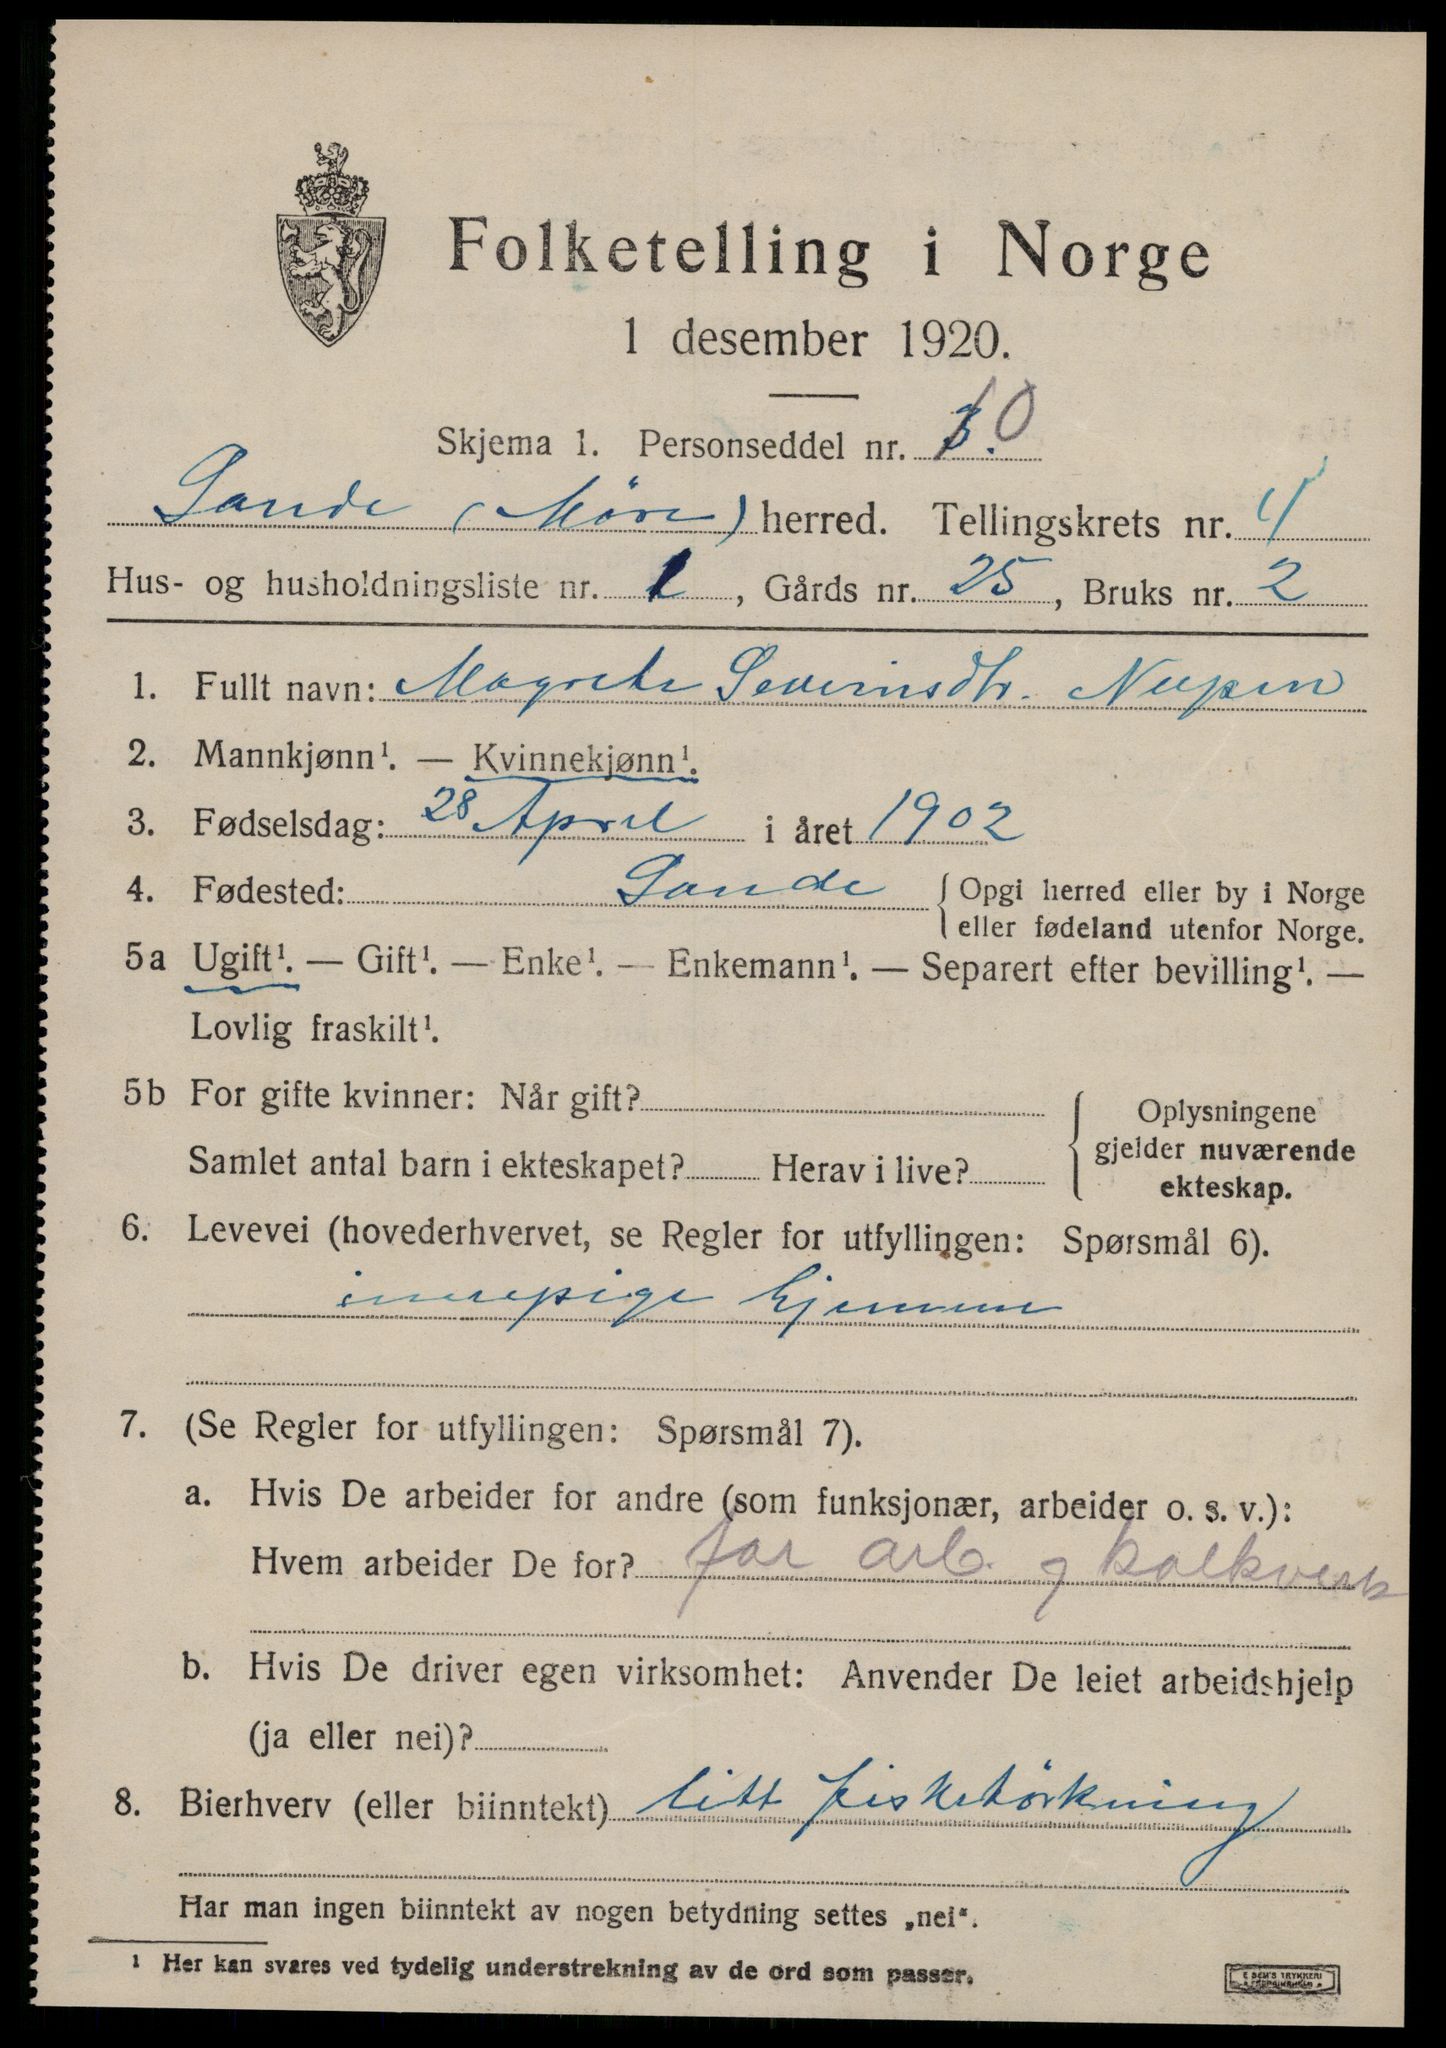 Folketelling i Norge
1 desember 1920.
Skjema 1. Personseddel nr. 10
Sande (Møre) herred. Tellingskrets nr. 4
Hus- og husholdningsliste nr. 1, Gårds nr. 25, Bruks nr. 2
1. Fullt navn: Magrete Severinsdtr. Nupen
2. Mannkjønn¹. — Kvinnekjønn¹.
3. Fødselsdag: 28 April i året 1902
4. Fødested: Sande { Opgi herred eller by i Norge
eller fødeland utenfor Norge.
5a Ugift¹. — Gift¹. — Enke¹. — Enkemann¹. — Separert efter bevilling¹. —
Lovlig fraskilt¹.
5b For gifte kvinner: Når gift?
Samlet antal barn i ekteskapet? Herav i live?
{ Oplysningene
gjelder nuværende
ekteskap.
6. Levevei (hovederhvervet, se Regler for utfyllingen: Spørsmål 6).
innepige hjemme
7. (Se Regler for utfyllingen: Spørsmål 7).
a. Hvis De arbeider for andre (som funksjonær, arbeider o. s. v.):
Hvem arbeider De for? far arb. kalkverk
b. Hvis De driver egen virksomhet: Anvender De leiet arbeidshjelp
(ja eller nei)?
8. Bierhverv (eller biinntekt) litt fisketörkning
Har man ingen biinntekt av nogen betydning settes „nei“.
¹ Her kan svares ved tydelig understrekning av de ord som passer.